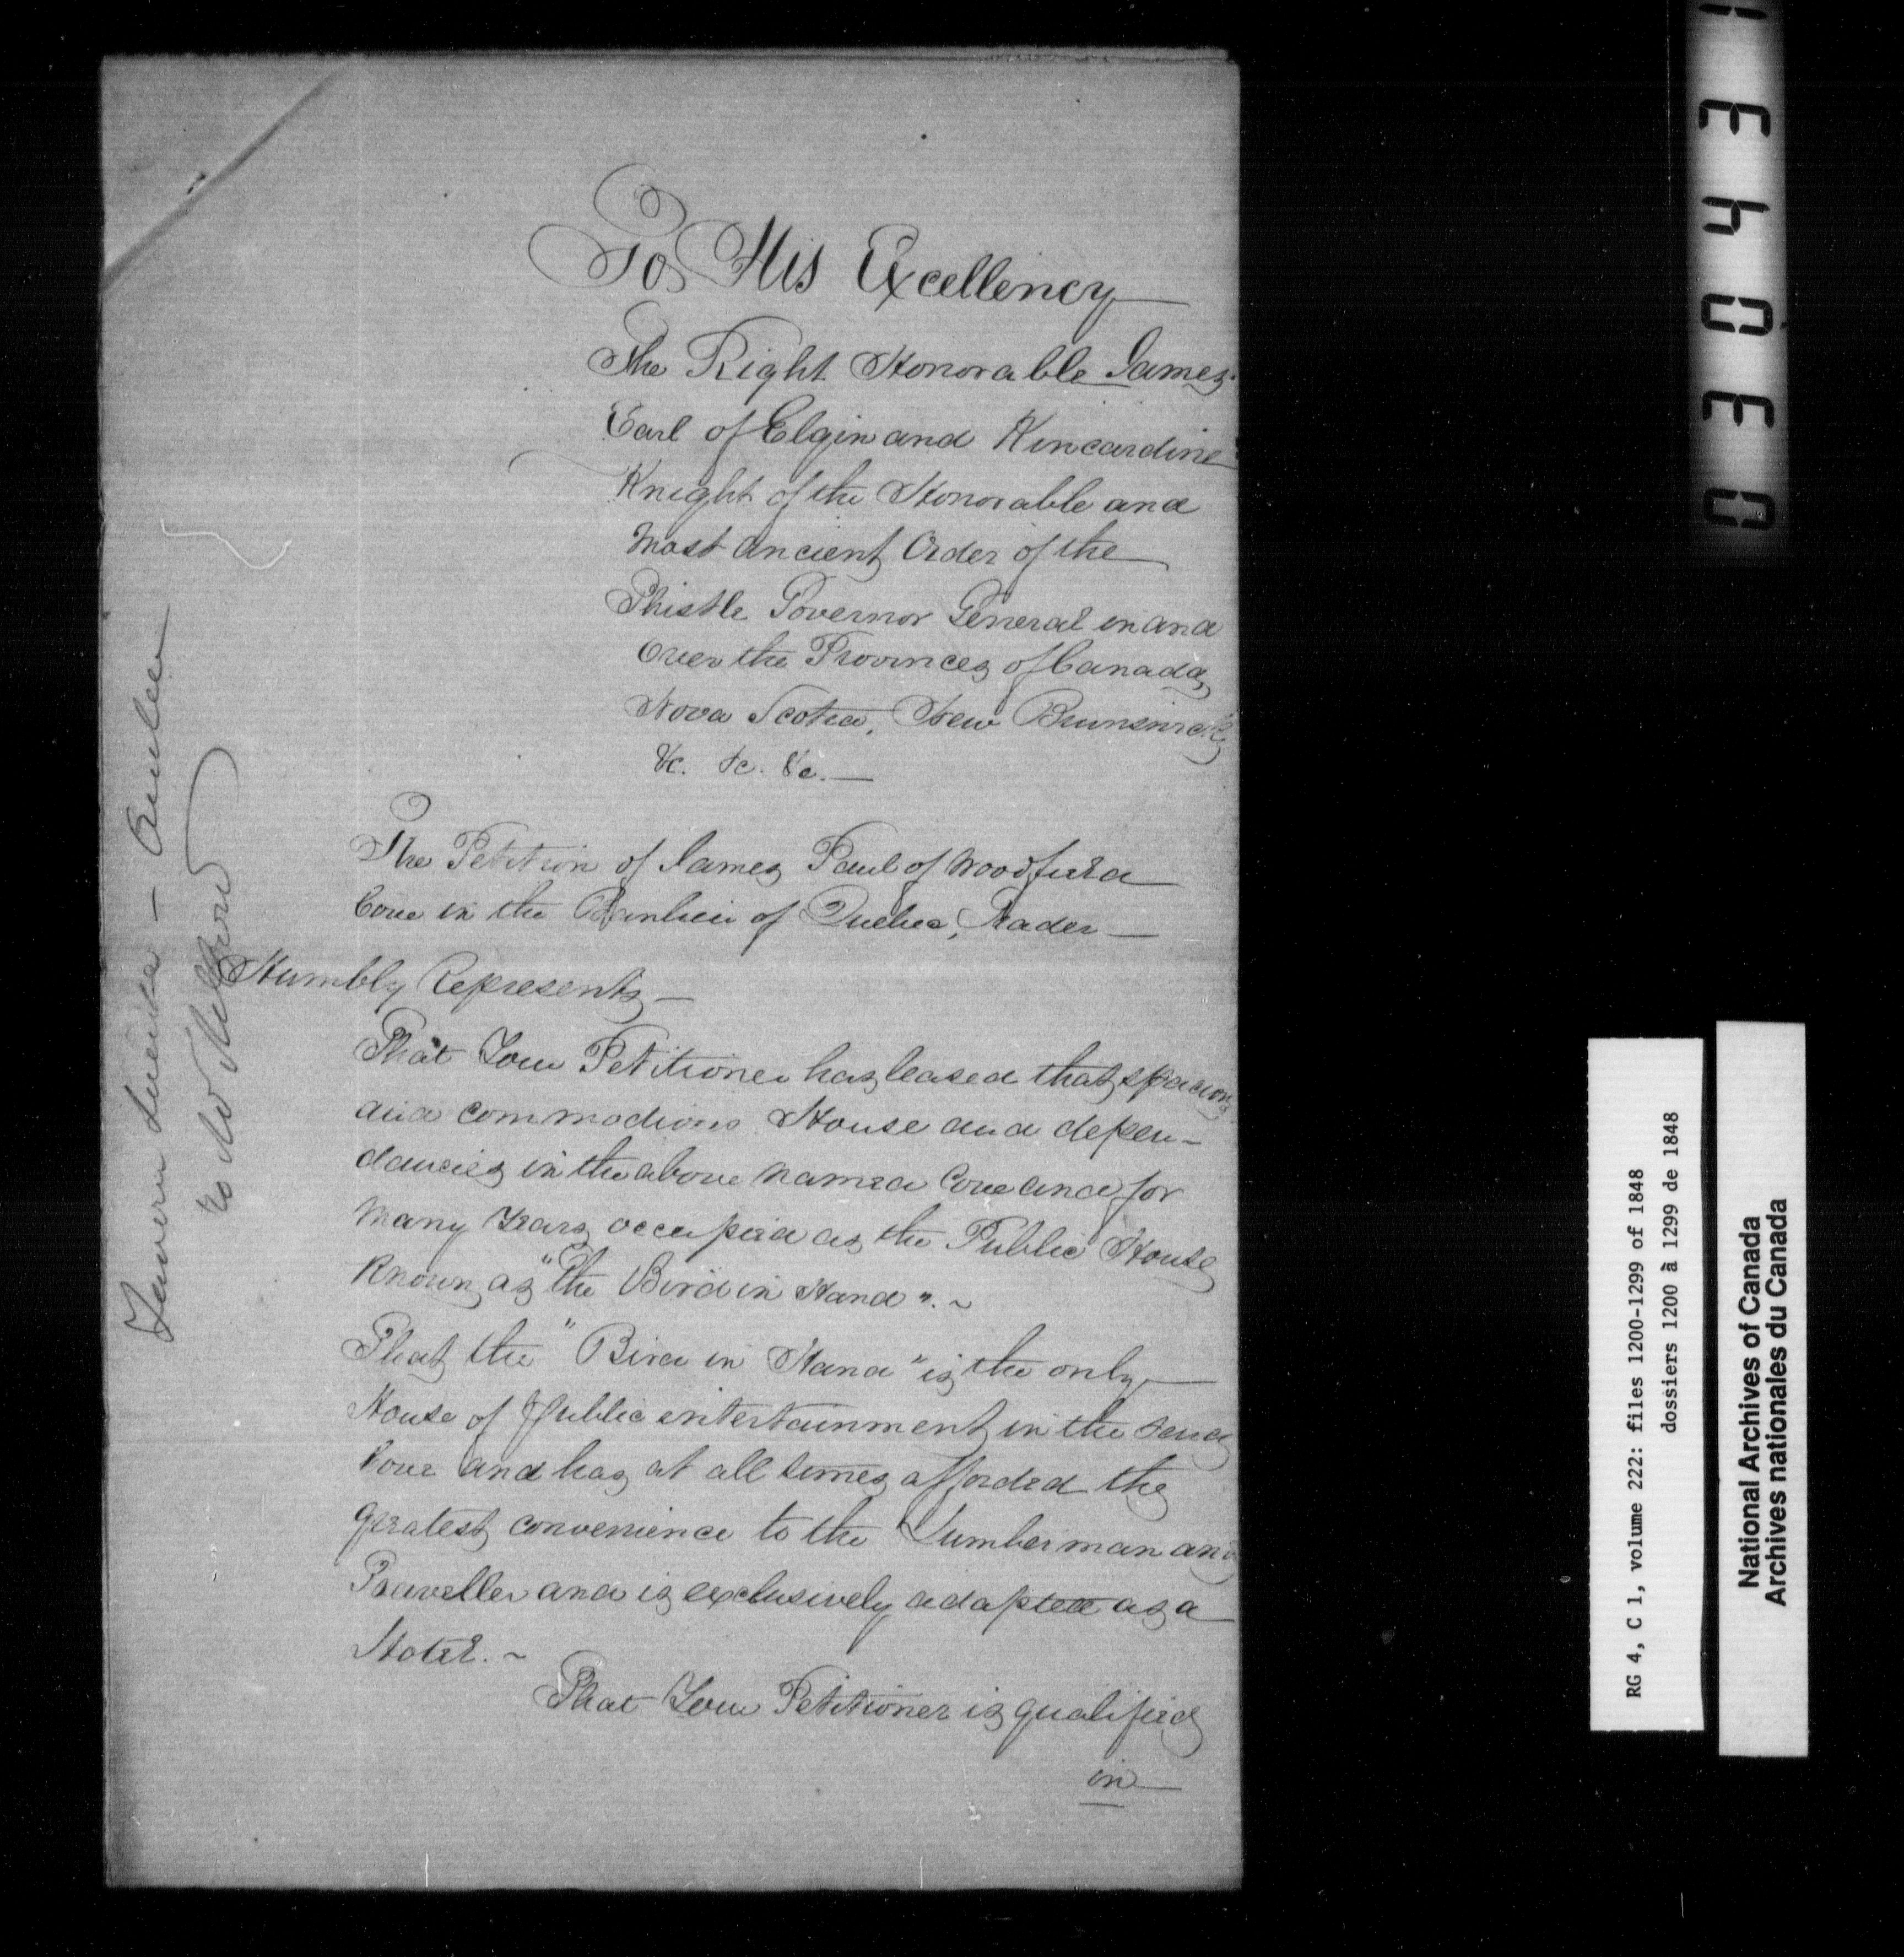 To His Excellency
The Right Honorable James
Earl of Elgin and Kincardine
Knight of the Honorable and
Most Ancient Order of the
Thistle Governor General in and
Over the Provinces of Canada,
Nova Scotia, New Brunswick,
&c. &c. &c. —
The Petition of James Paul of Woodfield
Cove in the Banlieu of Quebec, Trader —
Humbly Represents —
That Your Petitioner has leased that spacious
and commodious House and depen-
dancies in the above named Cove and for
Many Years occupied as the Public House
Known as "the Bird in Hand". ~
That the "Bird in Hand" is the only
House of Public entertainment in the said
Cove and has at all times afforded the
greatest convenience to the Lumberman and
Traveller and is exclusively adapted as a
Hotel. ~
That Your Petitioner is qualified
in
Tavern License — Banlieu
to
034031
RG 4, C 1, volume 222: files 1200-1299 of 1848
dossiers 1200 à 1299 de 1848
National Archives of Canada
Archives nationales du Canada